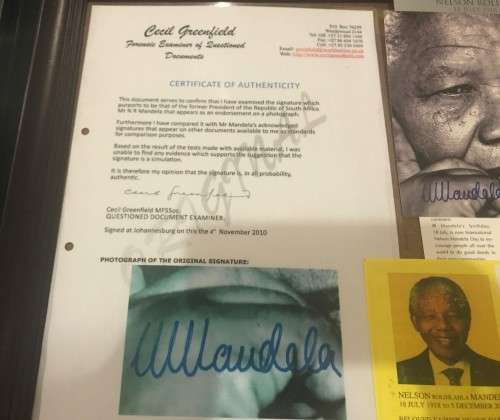 Cecil Greenfield
Forensic Examiner of Questioned
Documents
CERTIFICATE OF AUTHENTICITY
This document serves to confirm that I have examined the signature which
purports to be that of the former President of the Republic of South Africa,
Mr N R Mandela that appears as an endorsement on a photograph.
Furthermore I have compared it with Mr Mandela's acknowledged
signatures that appear on other documents available to me as standards
for comparison purposes.
Based on the result of the tests made with available material, I was
unable to find any evidence which supports the suggestion that the
signature is a simulation.
It is therefore my opinion that the signature is, in all probability,
authentic.
Cecil Greenfield
Cecil Greenfield MFSSoc
QUESTIONED DOCUMENT EXAMINER.
Signed at Johannesburg on this the 4th November 2010
PHOTOGRAPH OF THE ORIGINAL SIGNATURE:
NMandela
NMandela
NELSON ROLIHLAHLA MANDE
18 JULY 1918 TO 5 DECEMBER 20